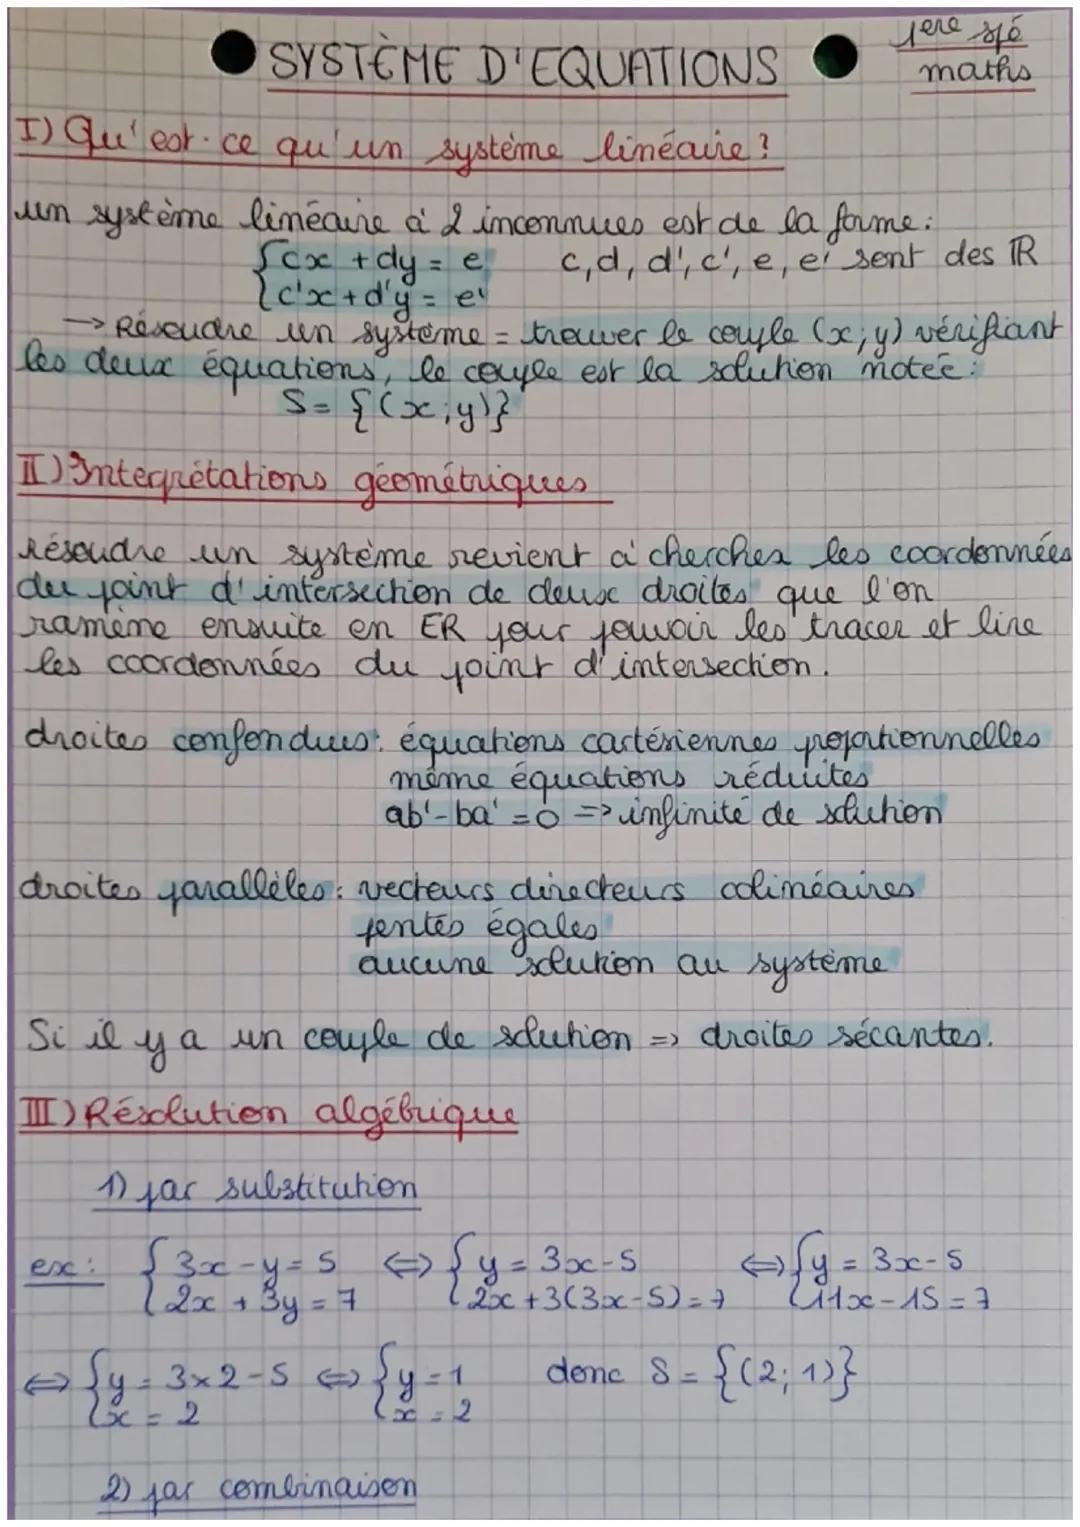 SYSTÈME D'EQUATIONS
1ere spé
maths
I) Qu'est-ce qu'un système linéaire ?
un système linéaire à 2 inconnues est de la forme :
{cx + dy = e   c, d, d', c', e, e' sont des ℝ
{c'x + d'y = e'
→ Résoudre un système = trouver le couple (x; y) vérifiant
les deux équations, le couple est la solution notée :
S = {(x; y)}
II) Interprétations géométriques
résoudre un système revient à chercher les coordonnées
du point d'intersection de deux droites que l'on
ramène ensuite en ER pour pouvoir les tracer et lire
les coordonnées du point d'intersection.
droites confondues : équations cartésiennes proportionnelles
même équations réduites
ab' - ba' = 0 => infinité de solution
droites parallèles : vecteurs directeurs colinéaires
pentes égales
aucune solution au système
Si il y a un couple de solution => droites sécantes.
III) Résolution algébrique
1) par substitution
ex : {3x - y = 5 ⇔ {y = 3x - 5 ⇔ {y = 3x - 5
{2x + 3y = 7 {2x + 3(3x - 5) = 7 {11x - 15 = 7
⇔ {y = 3×2 - 5 ⇔ {y = 1 donc S = {(2; 1)}
{x = 2 {x = 2
2) par combinaison